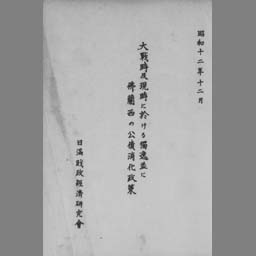 昭和十二年十二月
大戰時及現時に於ける獨逸並に
佛蘭西の公債消化政策
日滿財政經濟硏究會